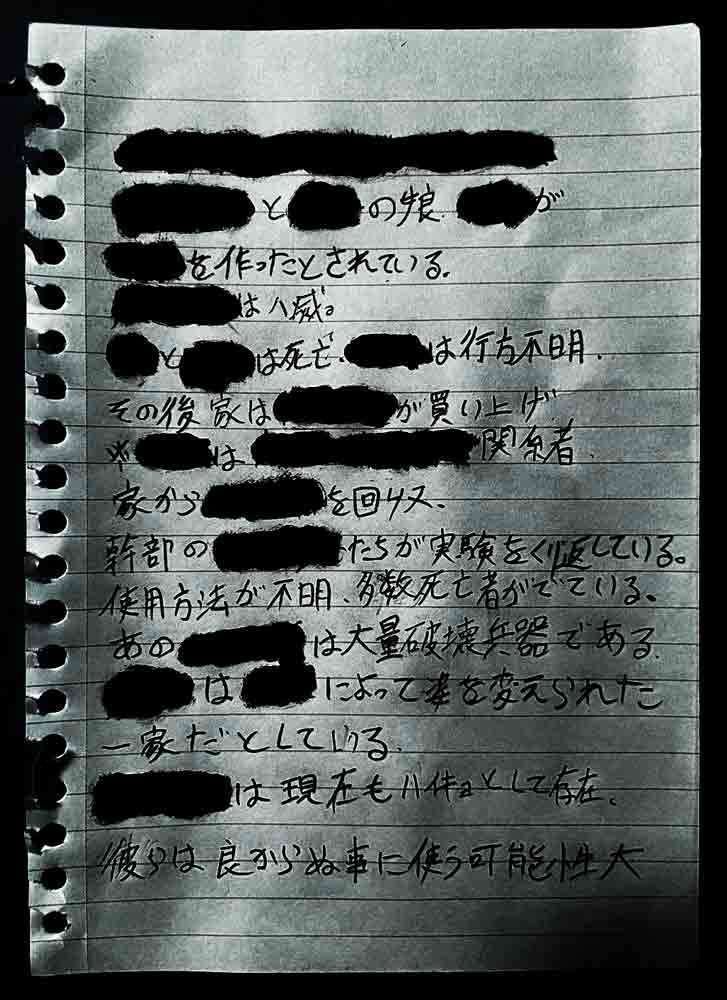 と の娘 が
を作ったとされている。
は八滅。
と は死亡、 は行方不明.
その後家は が買い上げ
※ は 関係者.
家から を回収.
幹部の たちが実験をくり返している。
使用方法が不明、多数死亡者がでている。
あの は大量破壊兵器である.
は によって姿を変えられた
一家だとしている.
は現在も として存在.
彼らは良からぬ事に使う可能性大